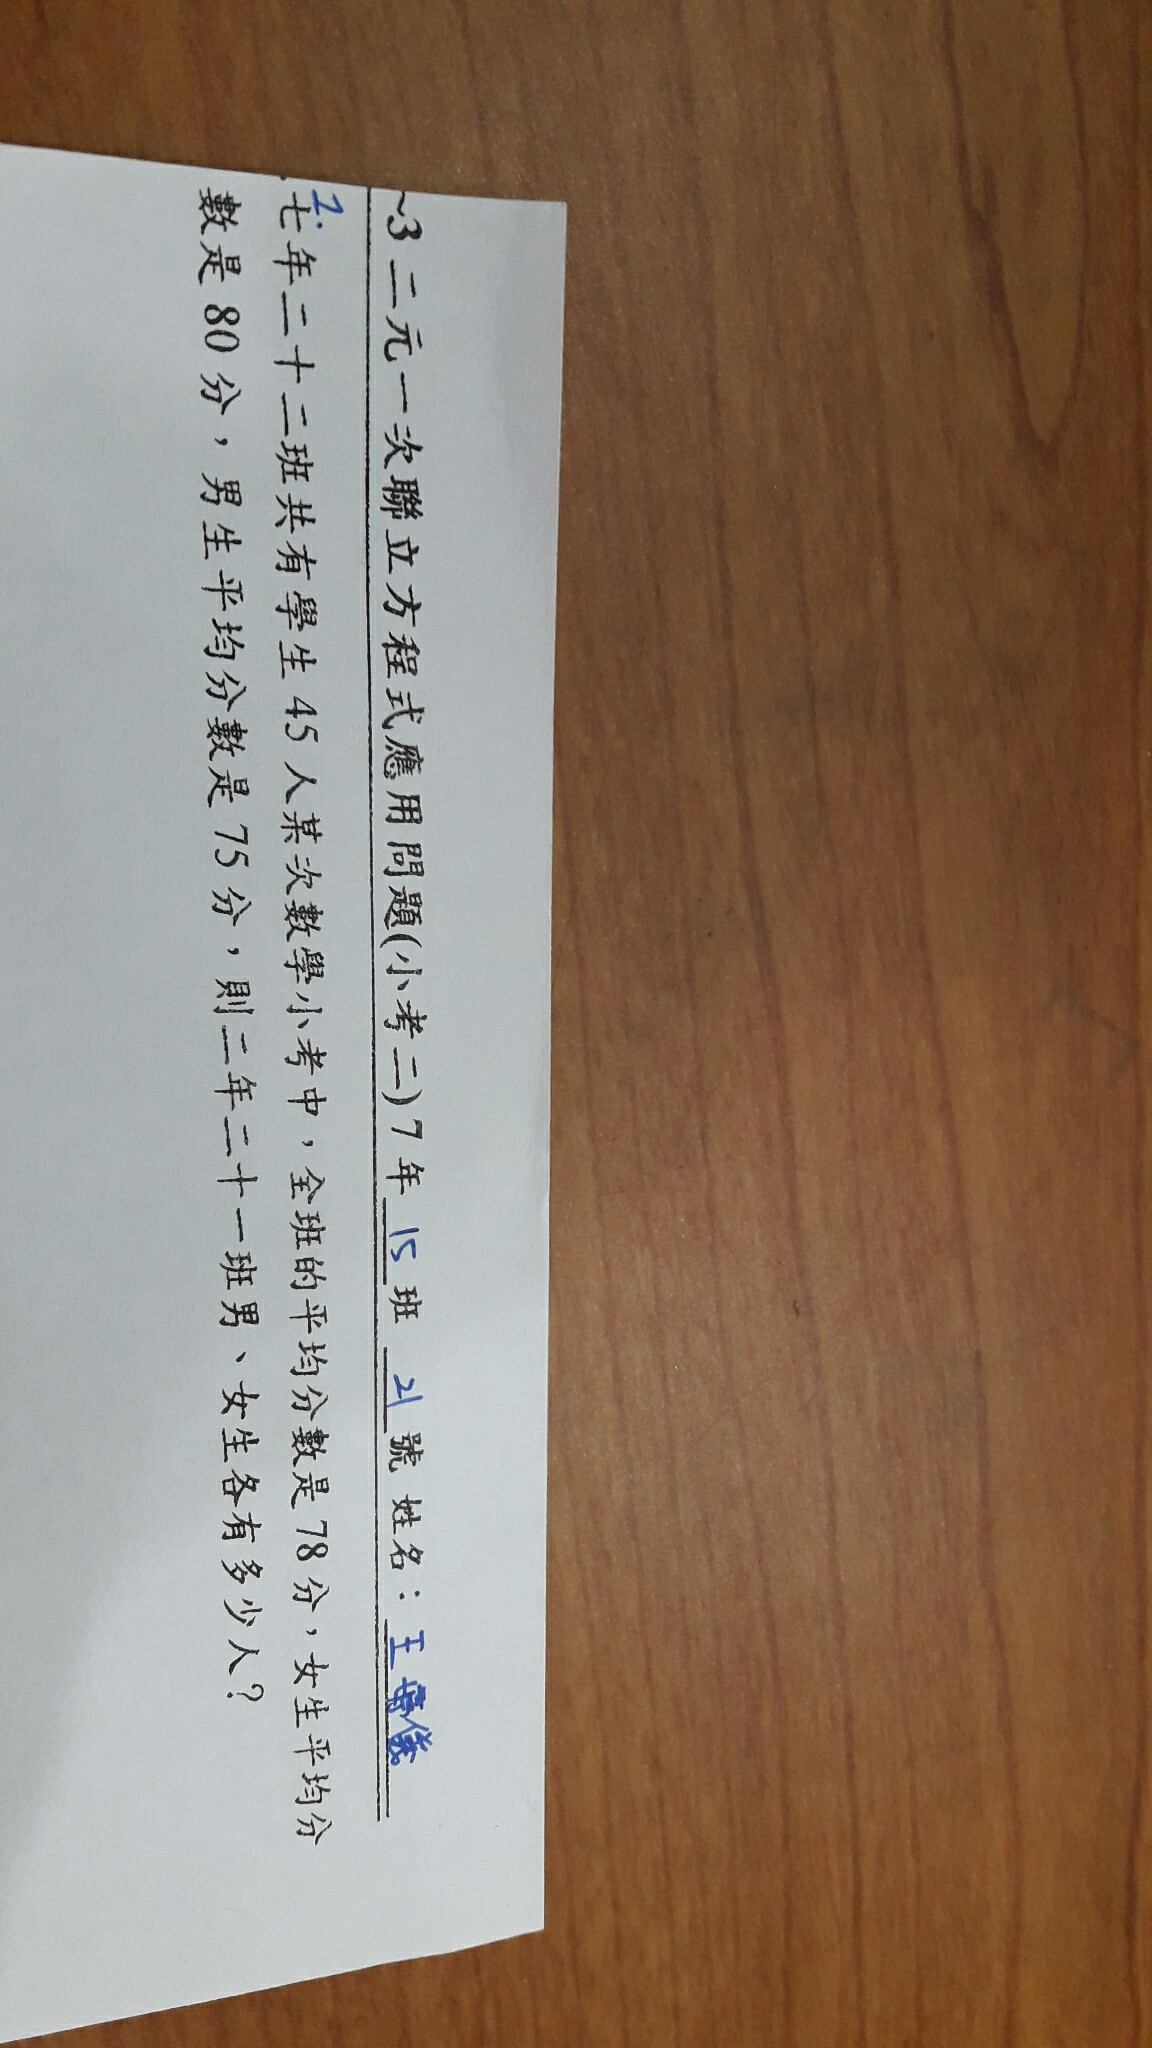 ~3 二元一次聯立方程式應用問題(小考二)7年 15 班 21 號 姓名：王儀
1.
七年二十二班共有學生 45 人某次數學小考中，全班的平均分數是 78 分，女生平均分
數是 80 分，男生平均分數是 75 分，則二年二十一班男、女生各有多少人？